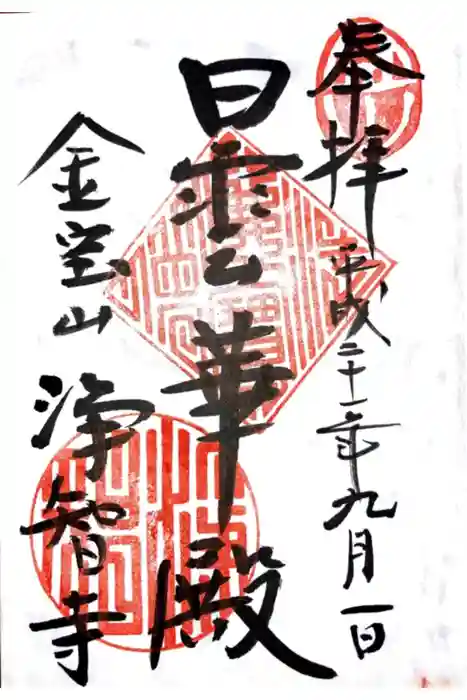 奉拝
平成二十一年九月一日
曇華殿
金宝山
浄智寺